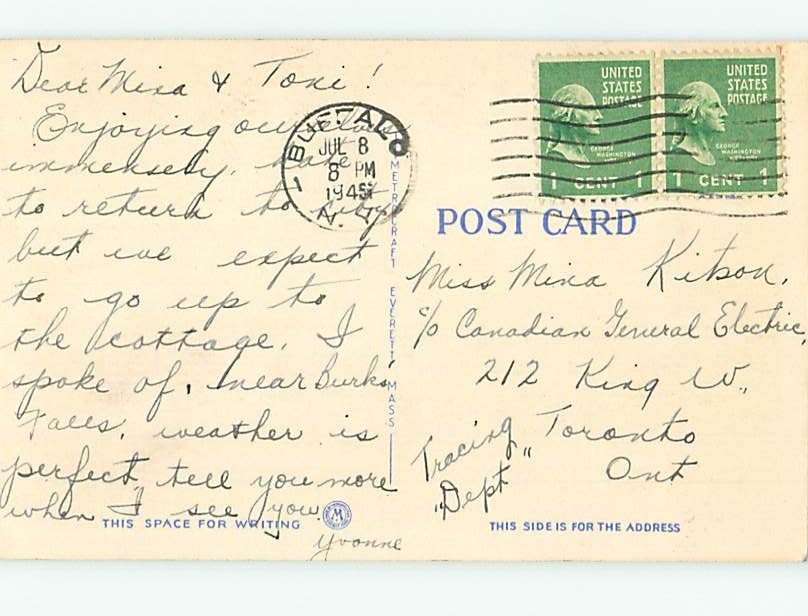 Dear Mina & Toni!
Enjoying ourselves
immensely, hate
to return to city
but we expect
to go up to
the cottage, I
spoke of, near Burks
Falls, weather is
perfect, tell you more
when I see you.
Yvonne
THIS SPACE FOR WRITING
METROCRAFT EVERETT, MASS
M
BUFFALO
JUL 8
8 PM
N.Y.
1
UNITED
STATES
POSTAGE
GEORGE
WASHINGTON
1 CENT 1
UNITED
STATES
POSTAGE
GEORGE
WASHINGTON
1 CENT 1
POST CARD
Miss Mina Kitson,
c/o Canadian General Electric,
212 King W.,
Toronto
Ont
"Tracing
Dept"
THIS SIDE IS FOR THE ADDRESS